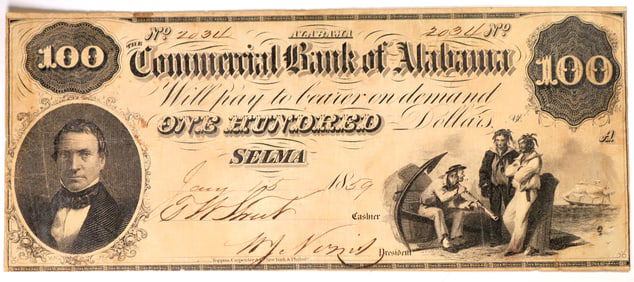 No 2034 ALABAMA 2034 No
100 THE Commercial Bank of Alabama 100
Will pay to bearer on demand
ONE HUNDRED Dollars
A
SELMA
1859
Cashier
President
Toppan, Carpenter & Co. New York & Phila.